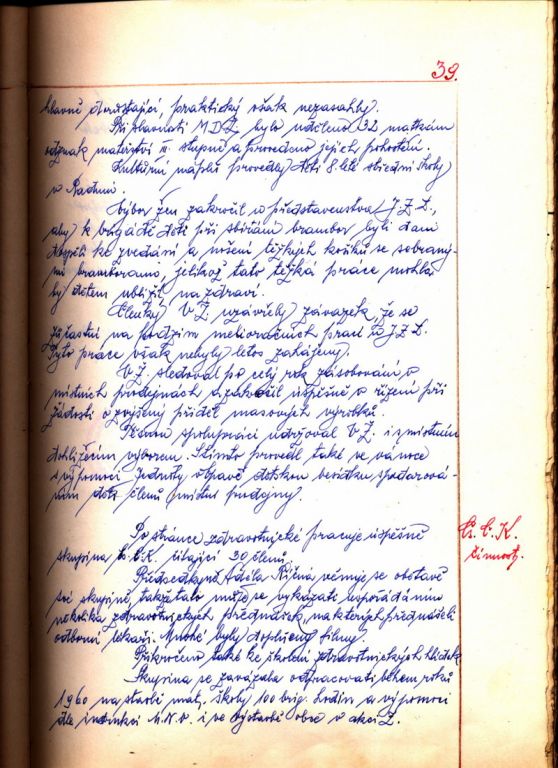 39.
hlavně dorůstající, prakticky však nezasáhly.
Při slavnosti M.D.Ž. bylo uděleno 32 matkám
odznak mateřství II. stupně a provedeno jejich pohoštění.
Kulturní náplň provedly děti 8 leté střední školy
v Radnici.
Výbor žen zakročil u představenstva J.Z.D.,
aby k brigádě dětí při sbírání brambor byli dáni
dospělí ke zvedání a nošení těžkých košíků se sebraný-
mi bramborami, jelikož tato těžká práce mohla
by dětem ublížit na zdraví.
Členky V.Ž. uzavřely závazek, že se
zúčastní na podzim melioračních prací v J.Z.D.
Tyto práce však nebyly letos zahájeny.
V.Ž. sledoval po celý rok zásobování v
místních prodejnách a zakročil úspěšně o řízení při
žádosti o zvýšený příděl masových výrobků.
Těsnou spolupráci udržoval V.Ž. i s místním
dohlížecím výborem. S tímto provedl také se vánoce
s výpomocí Jednoty, opravě dětskou besídku s podarová-
ním dětí členů místní prodejny.
Po stránce zdravotnické pracuje úspěšně
skupina Čs.Č.K. čítající 30 členů.
Čs. Č. K.
činnost.
Předsedkyně Adéla Říčná věnuje se obětavě
své skupině, takže tato může se vykázat uspořádáním
několika zdravotnických přednášek, na kterých přednášeli
odborní lékaři. Mnohé byly doplněny filmy.
Přikročeno také ke školení zdravotnických hlídek
Skupina se zavázala odpracovati během roku
1960 na stavbě mat. školy 100 brig. hodin a výpomoci
dle instrukcí M.N.V. i ve výstavbě obce v akci Z.